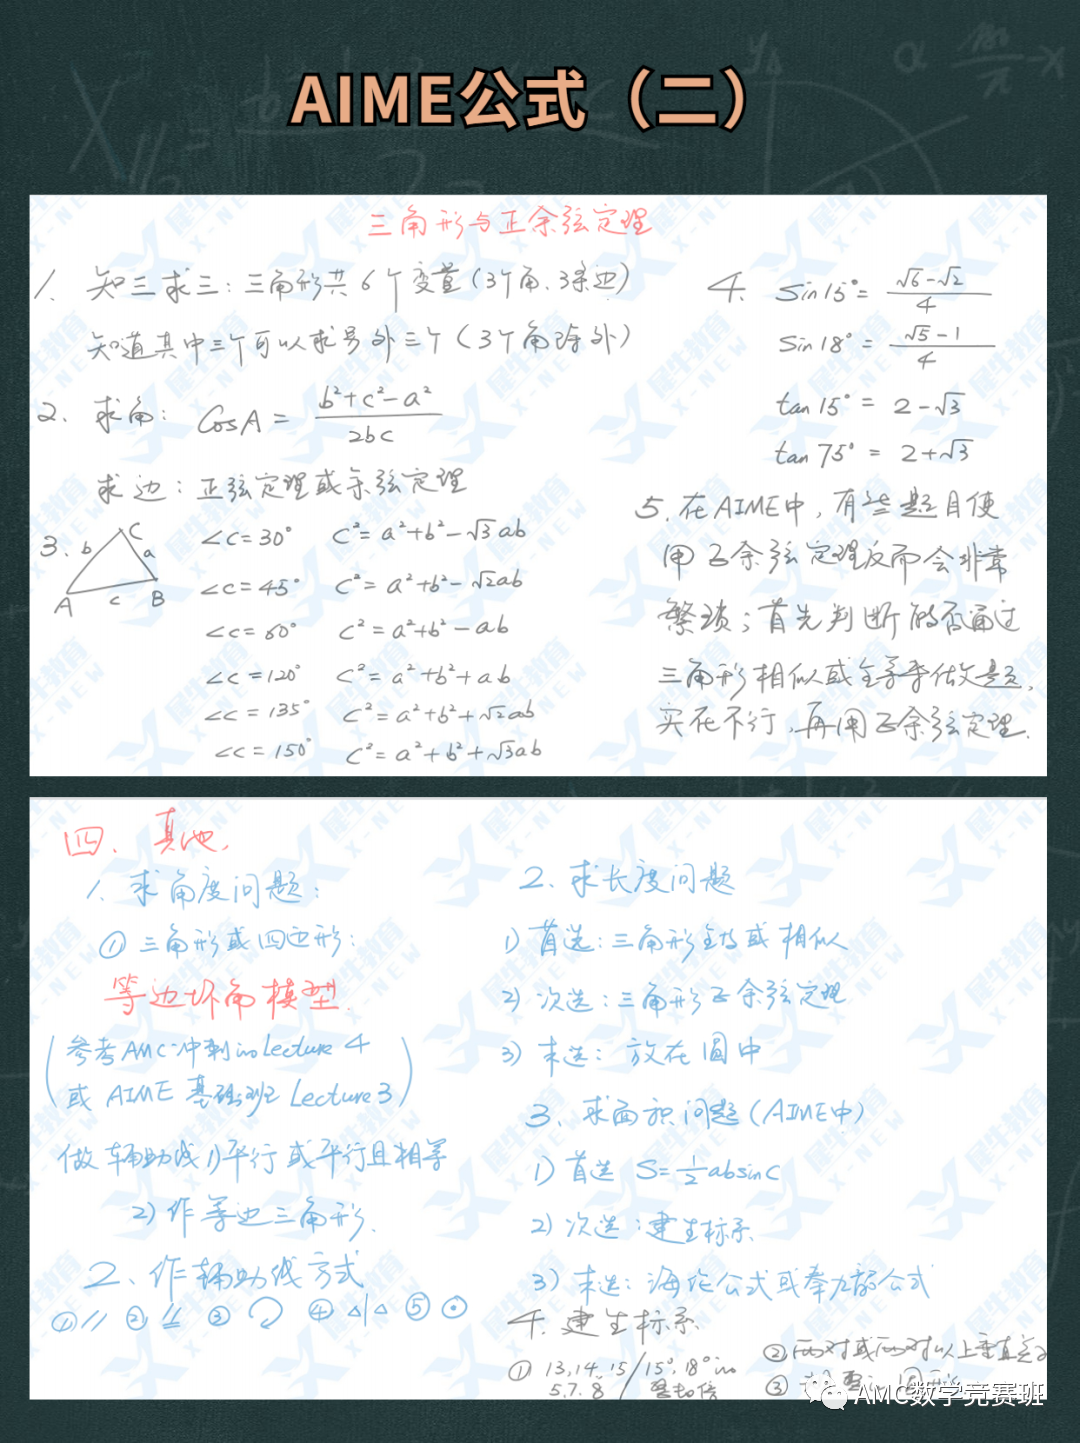 AIME公式（二）
三角形与正余弦定理
1. 知三求三：三角形共6个变量（3个角、3条边）
知道其中三个可以求另外三个（3个角除外）
2. 求角：cosA = (b²+c²-a²)/(2bc)
求边：正弦定理或余弦定理
3. C b a A c B
∠C=30° C²=a²+b²-√3ab
∠C=45° C²=a²+b²-√2ab
∠C=60° C²=a²+b²-ab
∠C=120° C²=a²+b²+ab
∠C=135° C²=a²+b²+√2ab
∠C=150° C²=a²+b²+√3ab
4. sin15°=(√6-√2)/4
sin18°=(√5-1)/4
tan15°=2-√3
tan75°=2+√3
5. 在AIME中，有些题目使
用正余弦定理反而会非常
繁琐；首先判断能否通过
三角形相似或全等来做题，
实在不行，再用正余弦定理.
四、其他.
1. 求角度问题：
① 三角形或四边形：
等边补角模型.
(参考AMC冲刺 Lecture 4
或 AIME 基础班 Lecture 3)
做辅助线 1)平行或平行且相等
2)作等边三角形.
2、作辅助线方式
① // ② ③ ④ ⑤
2. 求长度问题
1) 首选：三角形全等或相似
2) 次选：三角形正余弦定理
3) 末选：放在圆中
3. 求面积问题（AIME中）
1) 首选 S=½absinC
2) 次选：建坐标系
3) 末选：海伦公式或秦九韶公式
4. 建坐标系
① 13,14,15 / 15°,18°
5.7.8 整数倍
② 两对或两对以上垂直
③
AMC数学竞赛班